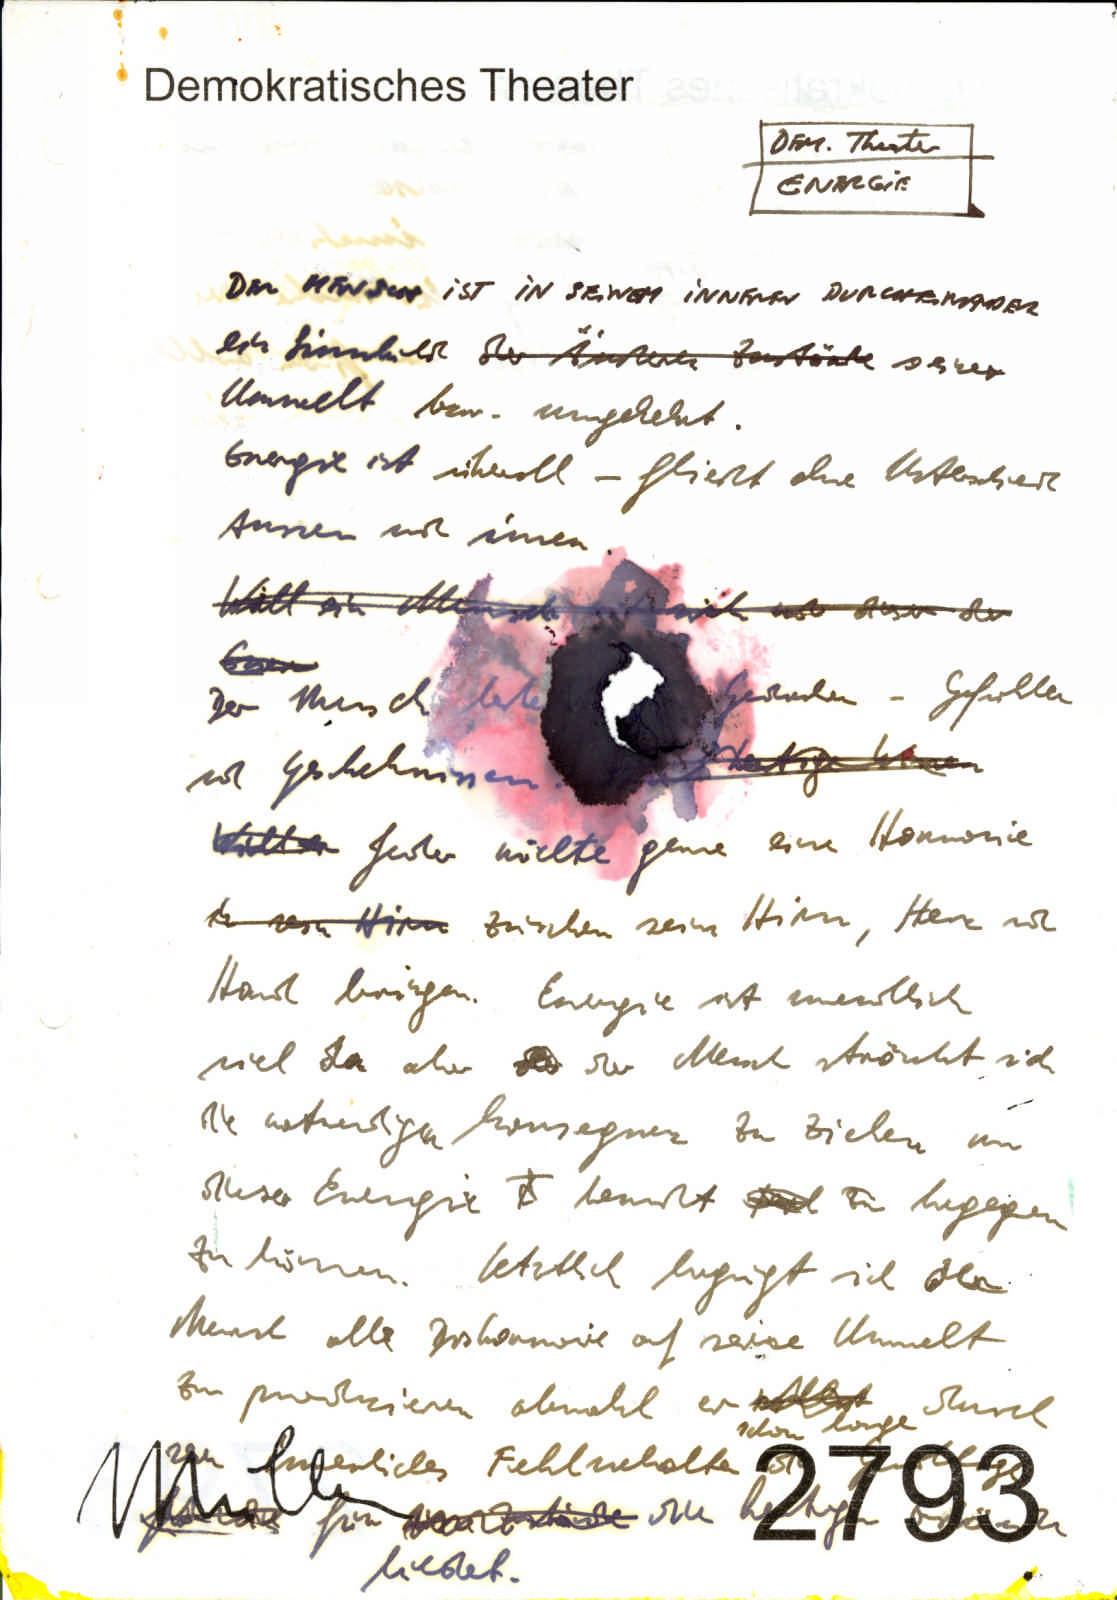 Demokratisches Theater
DEM. Theater
ENERGIE
DER MENSCH IST IN SEINEM INNEREN DURCHEINANDER
ein Sinnbild der Äusteren Zustände seiner
Umwelt bzw. umgekehrt.
Energie ist überall – fliesst ohne Unterschied
Aussen und innen.
Will ein Mensch sich
Der Mensch lebt Gedanken – Gefühlen
und Geschehnissen. heutige
Will er Jeder möchte gerne eine Harmonie
in sein Hirn zwischen sein Hirn, Herz und
Hand bringen. Energie ist unendlich
viel da aber der Mensch sträubt sich
die notwendigen Konsequenz zu ziehen um
dieser Energie bewusst zu begegnen
zu können. Letztlich begnügt sich der
Mensch alle Disharmonie auf seine Umwelt
zu produzieren obwohl er selbst durch
schon lange
sein Fehlverhalten die
für die heutigen
bildet.
2793